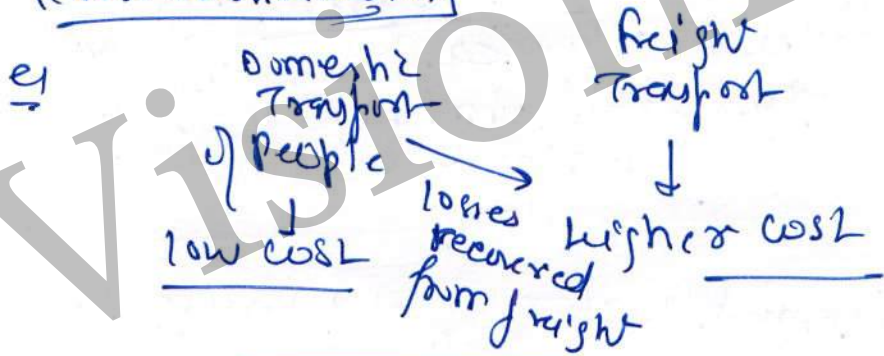 eg
Domestic
Transport
of People
low cost
losses
recovered
from freight
Freight
Transport
Higher cost
Vision